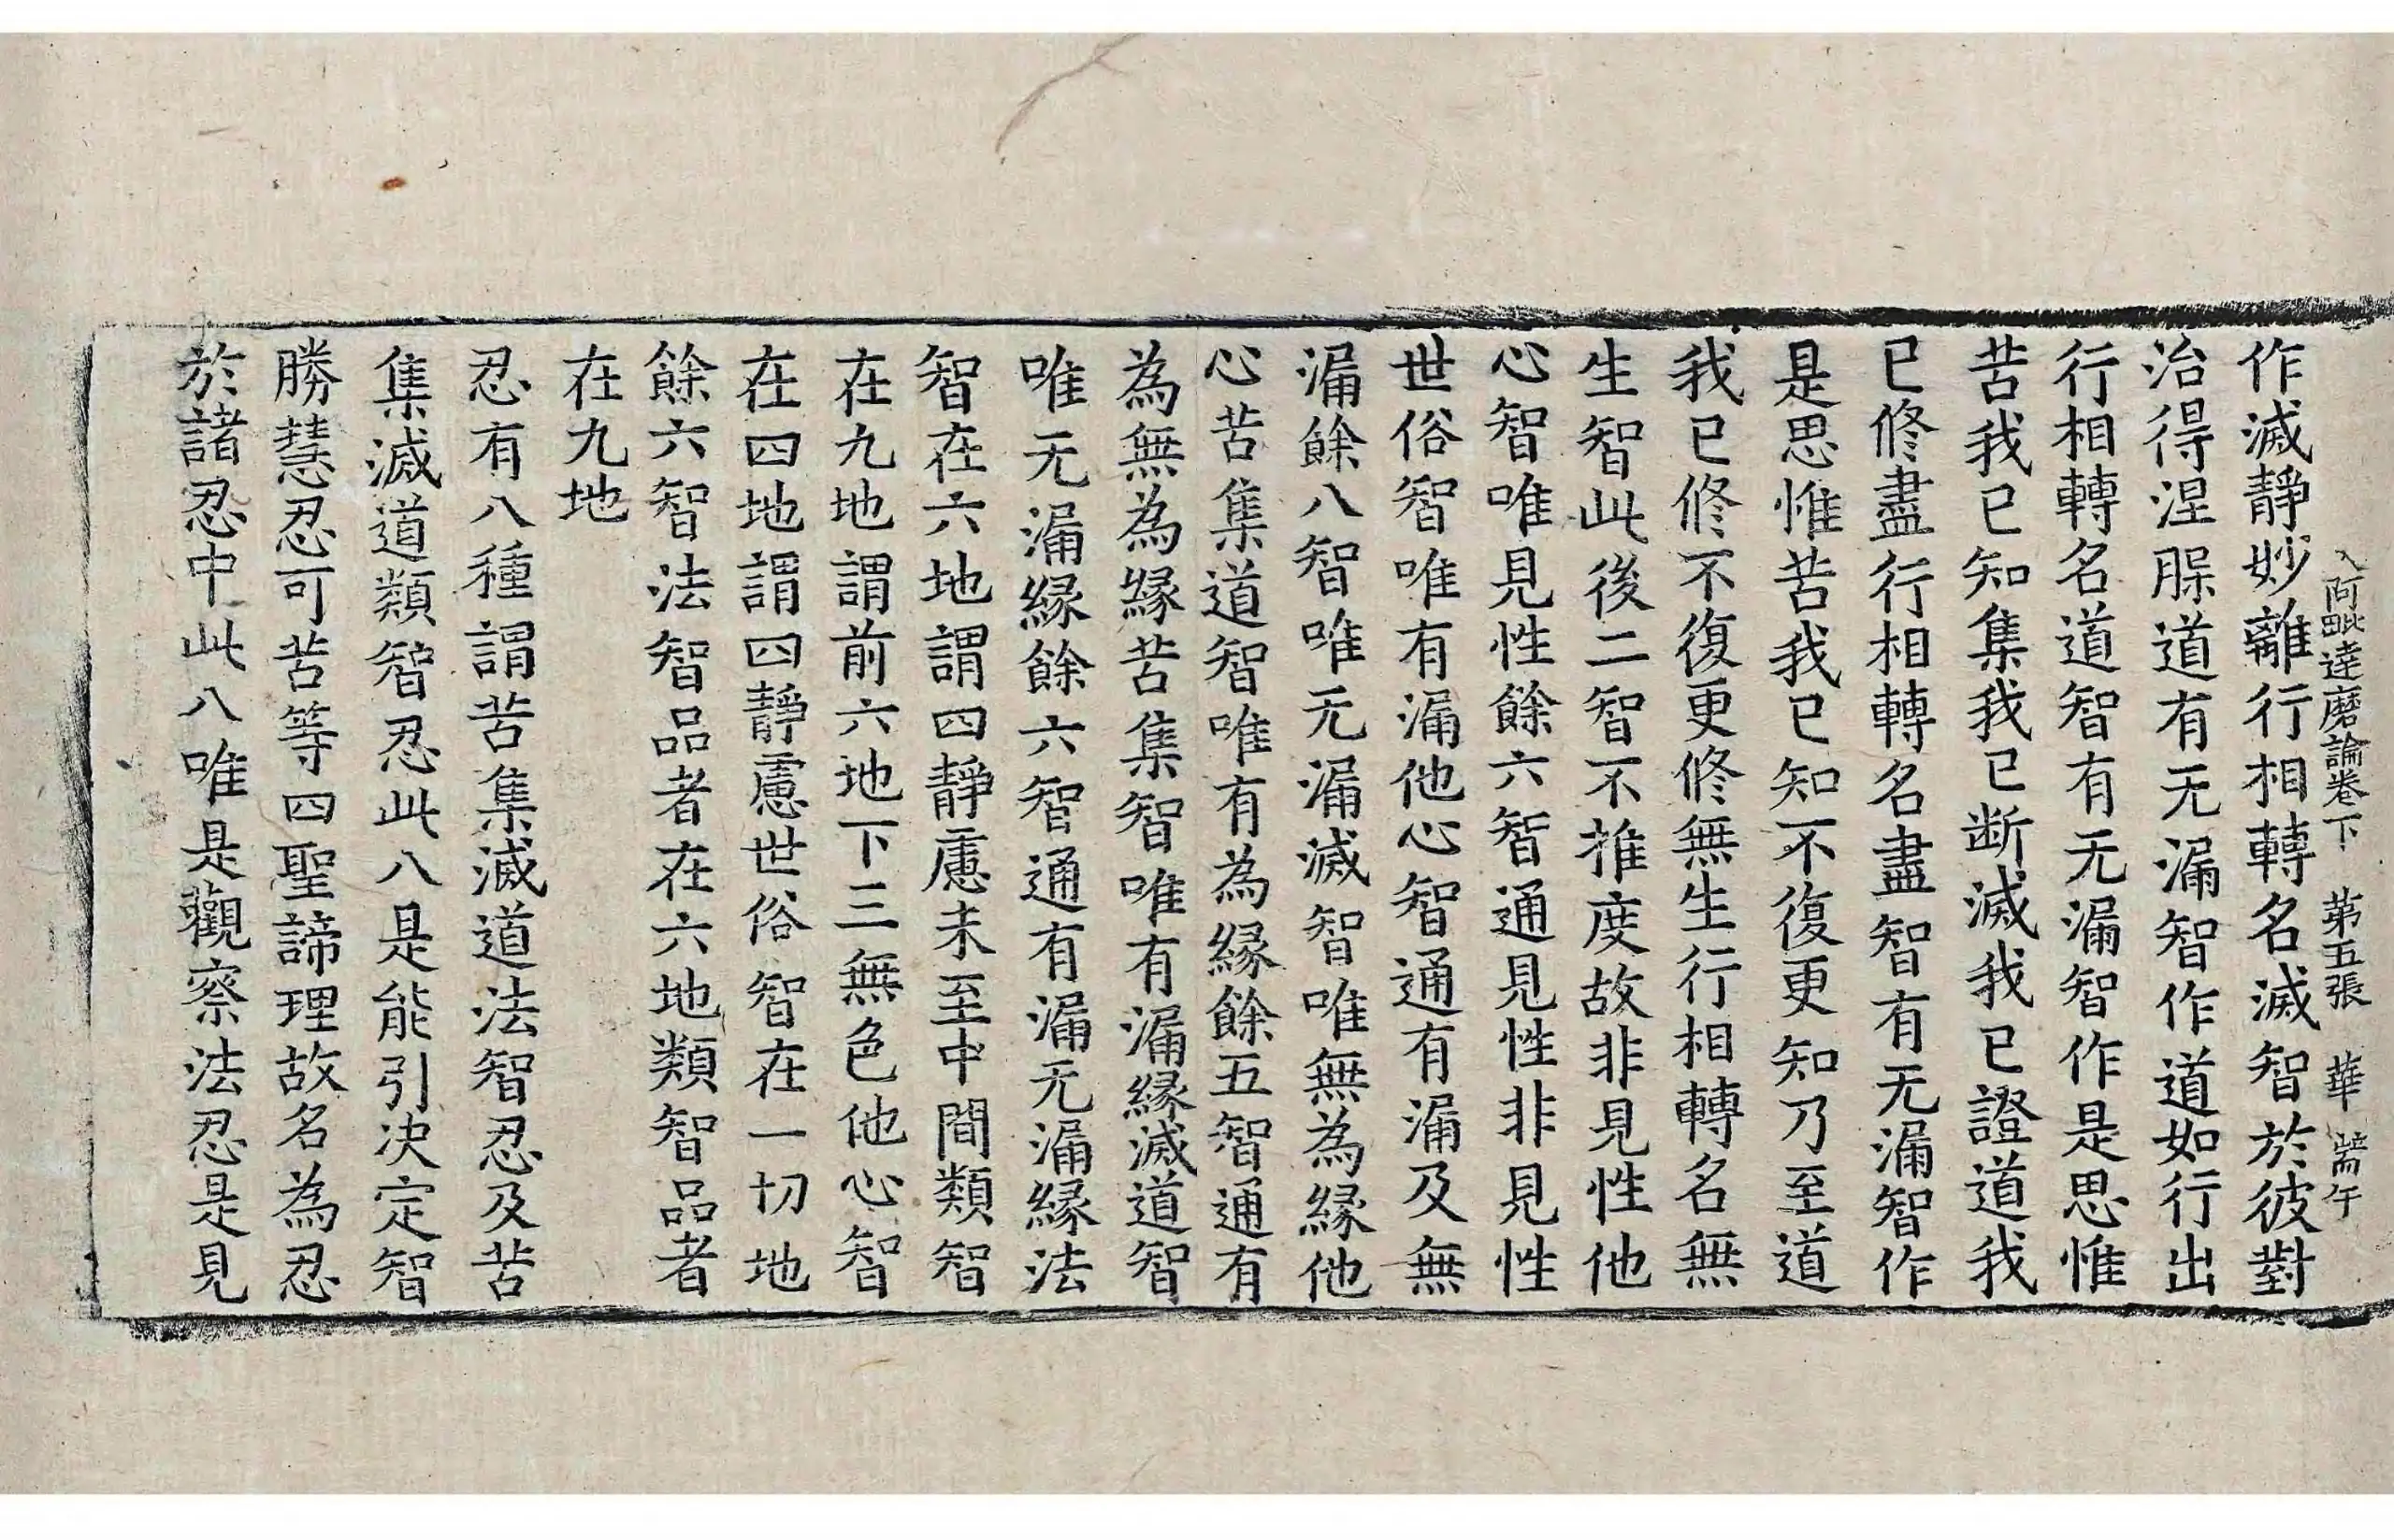 入阿毗達磨論卷下 第五張 華 耑午
作滅靜妙離行相轉名滅智於彼對
治得涅脲道有无漏智作道如行出
行相轉名道智有无漏智作是思惟
苦我已知集我已断滅我已證道我
已修盡行相轉名盡智有无漏智作
是思惟苦我已知不復更知乃至道
我已修不復更修無生行相轉名無
生智此後二智不推度故非見性他
心智唯見性餘六智通見性非見性
世俗智唯有漏他心智通有漏及無
漏餘八智唯无漏滅智唯無為緣他
心苦集道智唯有為緣餘五智通有
為無為緣苦集智唯有漏緣滅道智
唯无漏緣餘六智通有漏无漏緣法
智在六地謂四靜慮未至中間類智
在九地謂前六地下三無色他心智
在四地謂四靜慮世俗智在一切地
餘六智法智品者在六地類智品者
在九地
忍有八種謂苦集滅道法智忍及苦
集滅道類智忍此八是能引决定智
勝慧忍可苦等四聖諦理故名為忍
於諸忍中此八唯是觀察法忍是見